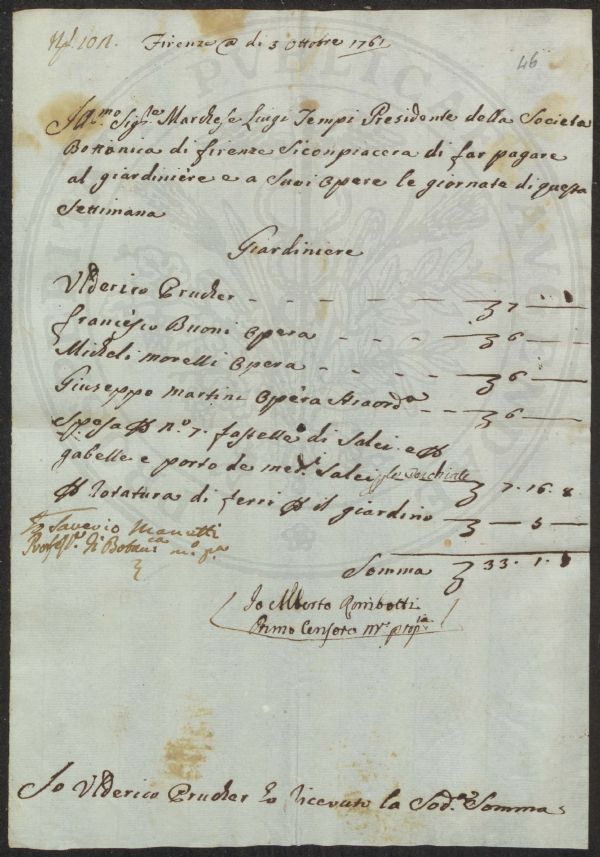 N.º 101.
Firenze @ di 3 Ottobre 1761
46
Ill.mo Sig.re Marchese Luigi Tempi Presidente della Societa
Bottanica di firenze Siconpiacera di far pagare
al giardiniere e a Suoi Opere le giornate di questa
Settimana
Giardiniere
Vlderico Prucher - - - - - 7 —
francesco Buoni Opera - - - 6 —
Micheli Morelli Opera - - - - 6 —
Giuseppo Martini Opera - - 6 —
Spesa n.º 7. fastelle di Salci e
gabelle e porto dei med.i Salci 7. 16. 8
Rotatura di ferri il giardino — 5 —
Saverio Manetti
Profess.re di Botanica m.º p.a
Somma 33. 1. 8
Io Alberto Rombotti
Primo Censore m.o prop.ia
Io Vlderico Prucher ho ricevuto la Sod.a Somma